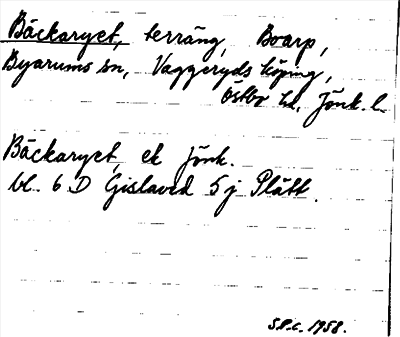 Bäckaryet, terräng, Boarp,
Byarums sn, Vaggeryds köping,
Östbo hd, Jönk. l.
Bäckaryet, ek Jönk.
bl. 6 D Gislaved 5 j Plätt.
S.P.c. 1958.